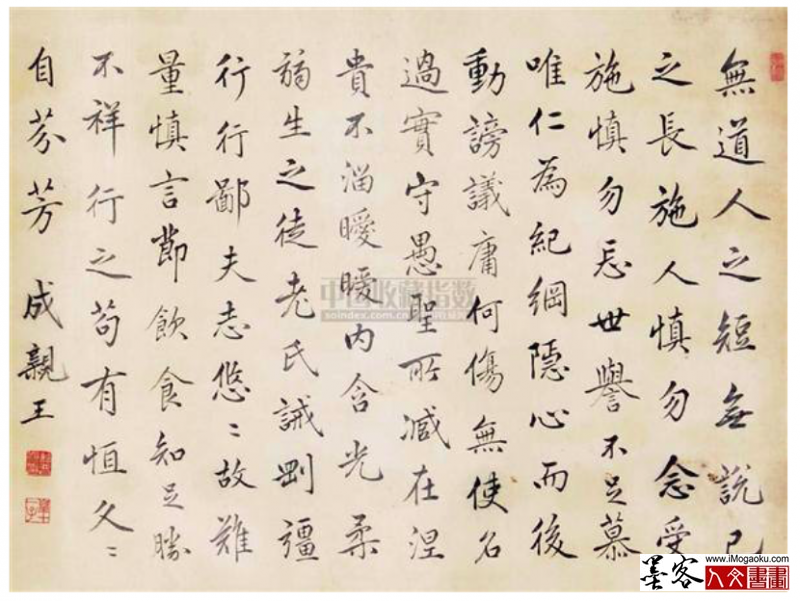 無道人之短無說己
之長施人慎勿念受
施慎勿忘世譽不足慕
唯仁為紀綱隱心而後
動謗議庸何傷無使名
過實守愚聖所臧在涅
貴不淄曖曖內含光柔
弱生之徒老氏誡剛彊
行行鄙夫志悠〻故難
量慎言節飲食知足勝
不祥行之苟有恒久〻
自芬芳 成親王
中国收藏指数
墨客
www.iMogaoku.com
人文書畫